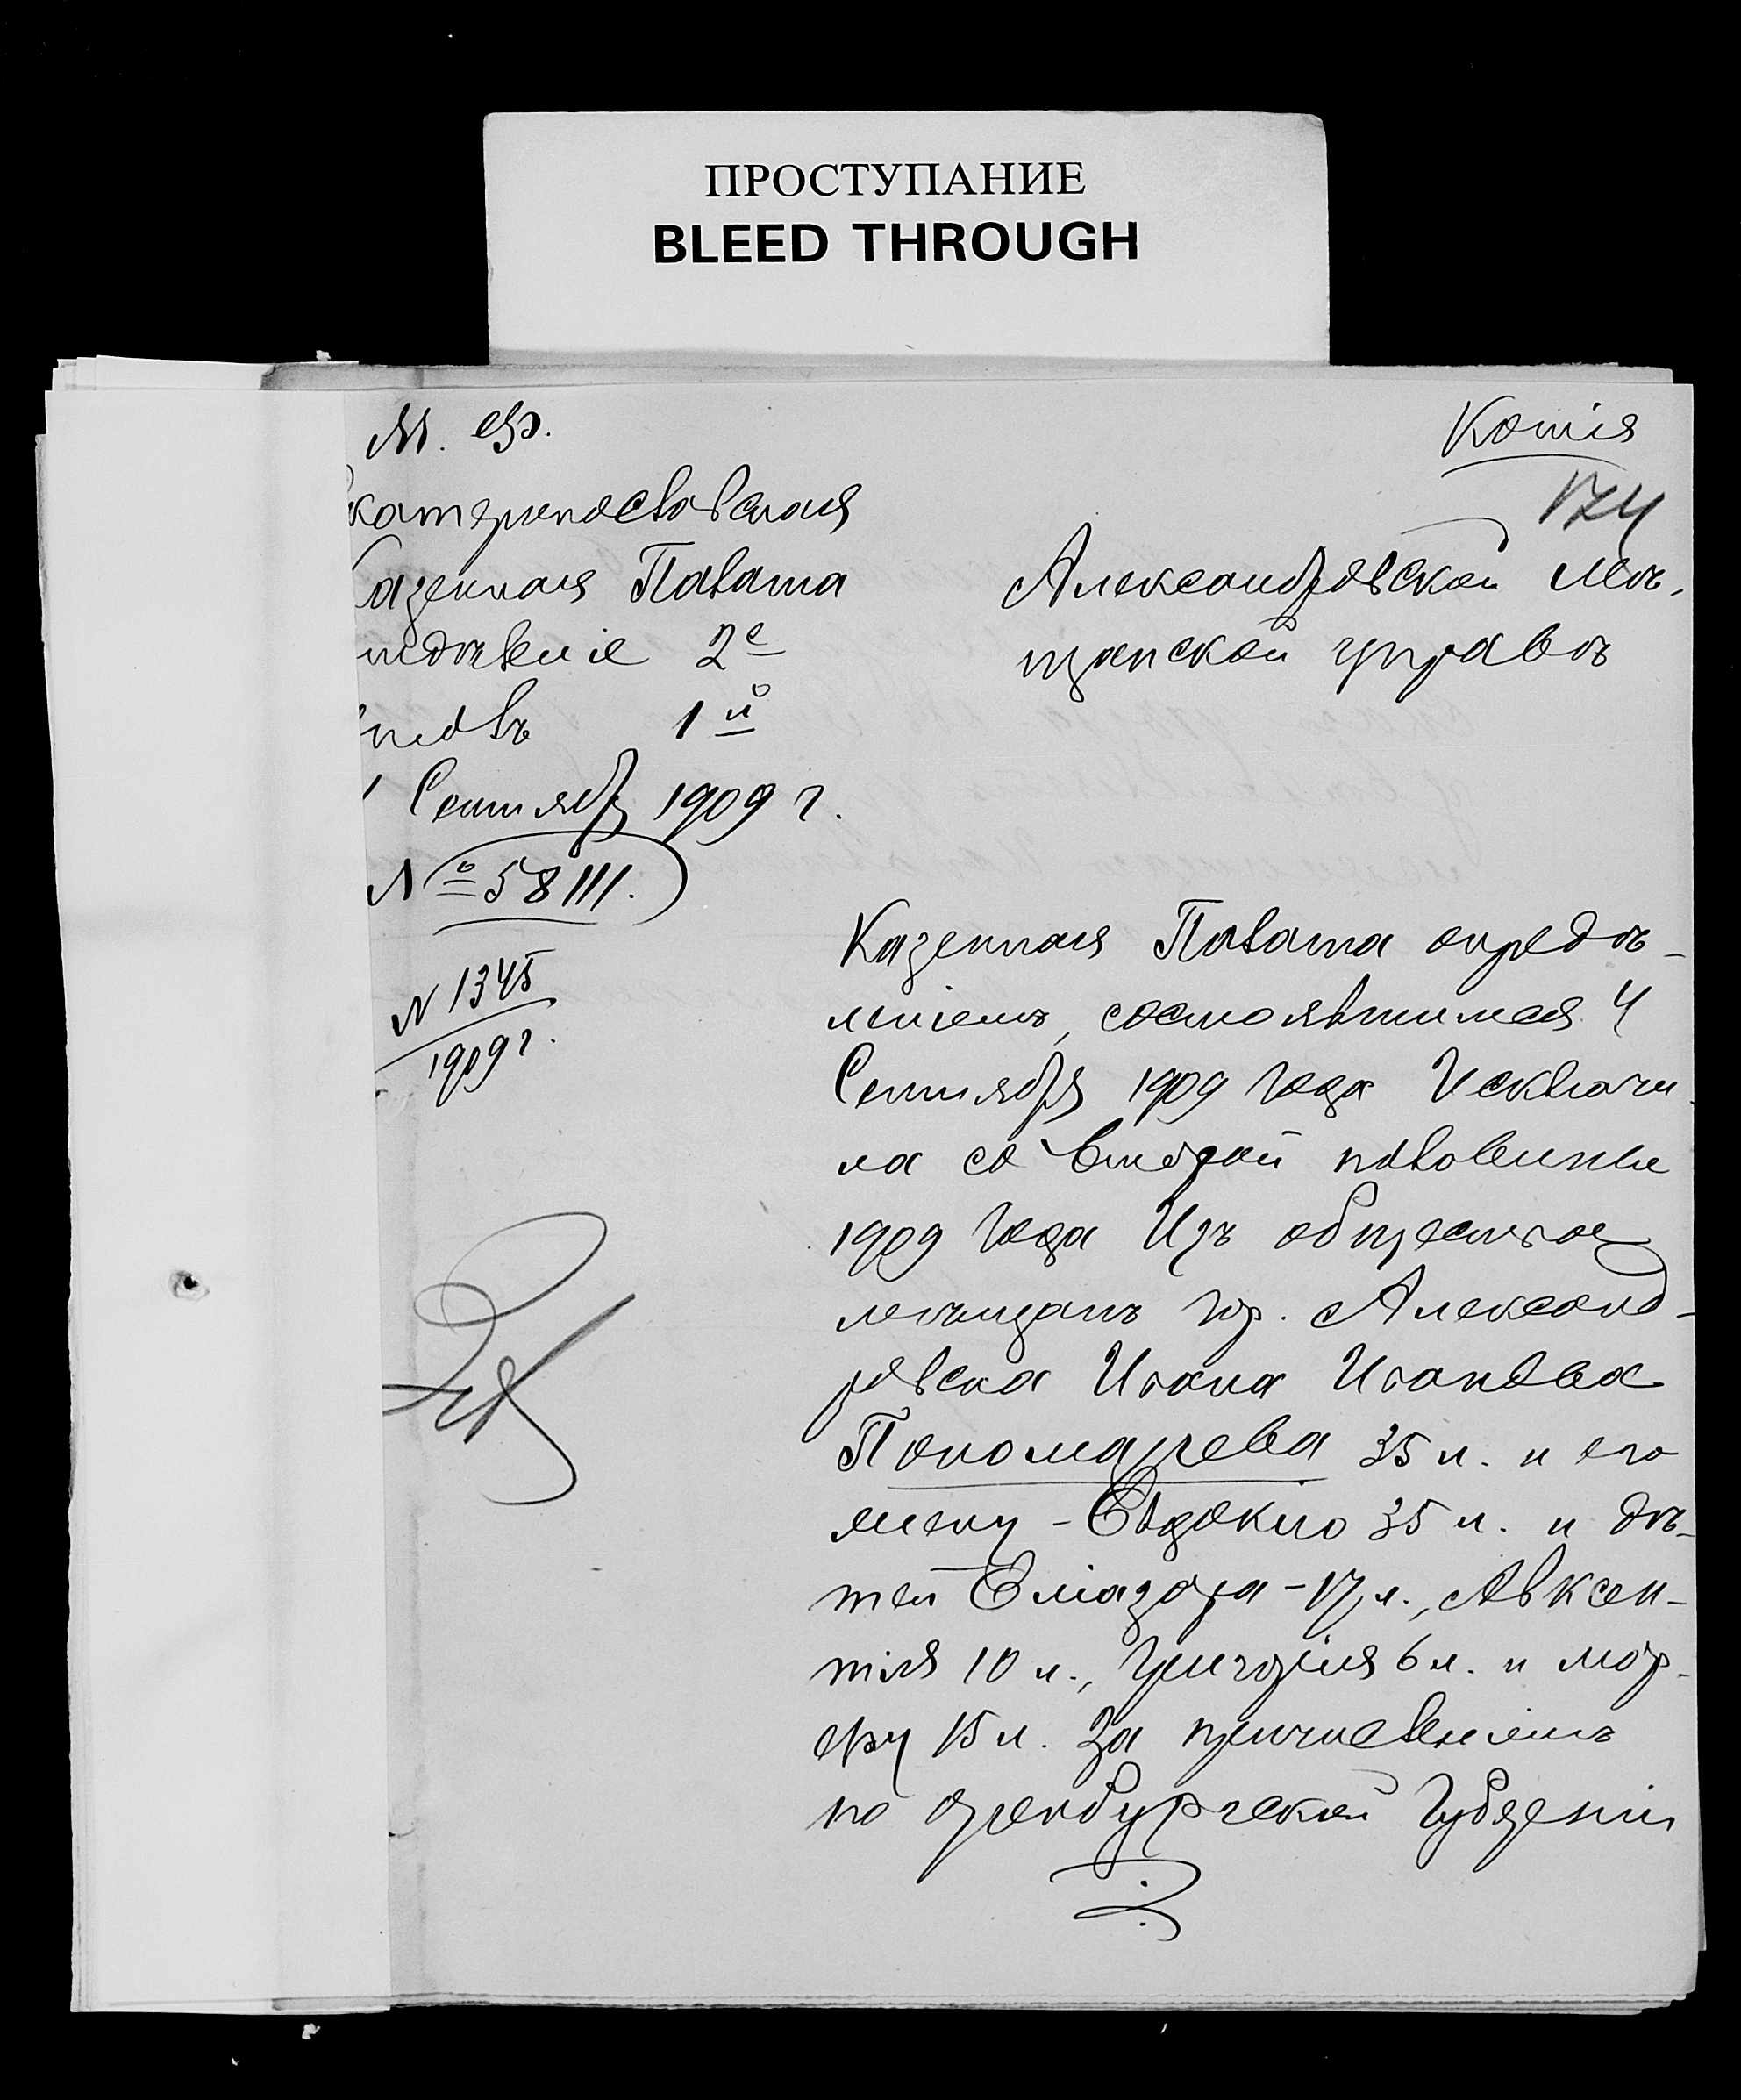 ПРОСТУПАНИЕ
BLEED THROUGH
М. Ф.
Копія
174
катеринославская
Казенная Палата
тдѣленіе 2е
столъ 1й
Сентября 1909 г.
№ 58111.
N 1345
1909 г.
Александровской Мѣ-
щанской управѣ
Казенная Палата опредѣ-
леніемъ, состоявшимся 4
Сентября 1909 года Исключи-
ла со второй половины
1909 года Изъ общества
мѣщанъ гор. Александ-
ровска Ивана Иванова
Пономарева 35 л. и его
жену - Евдокію 35 л. и дѣ-
тей - 17 л., Авксен-
тія 10 л., Григорія 6 л. и Мар-
фу 15 л. За причисленіемъ
по Оренбургской Губерніи